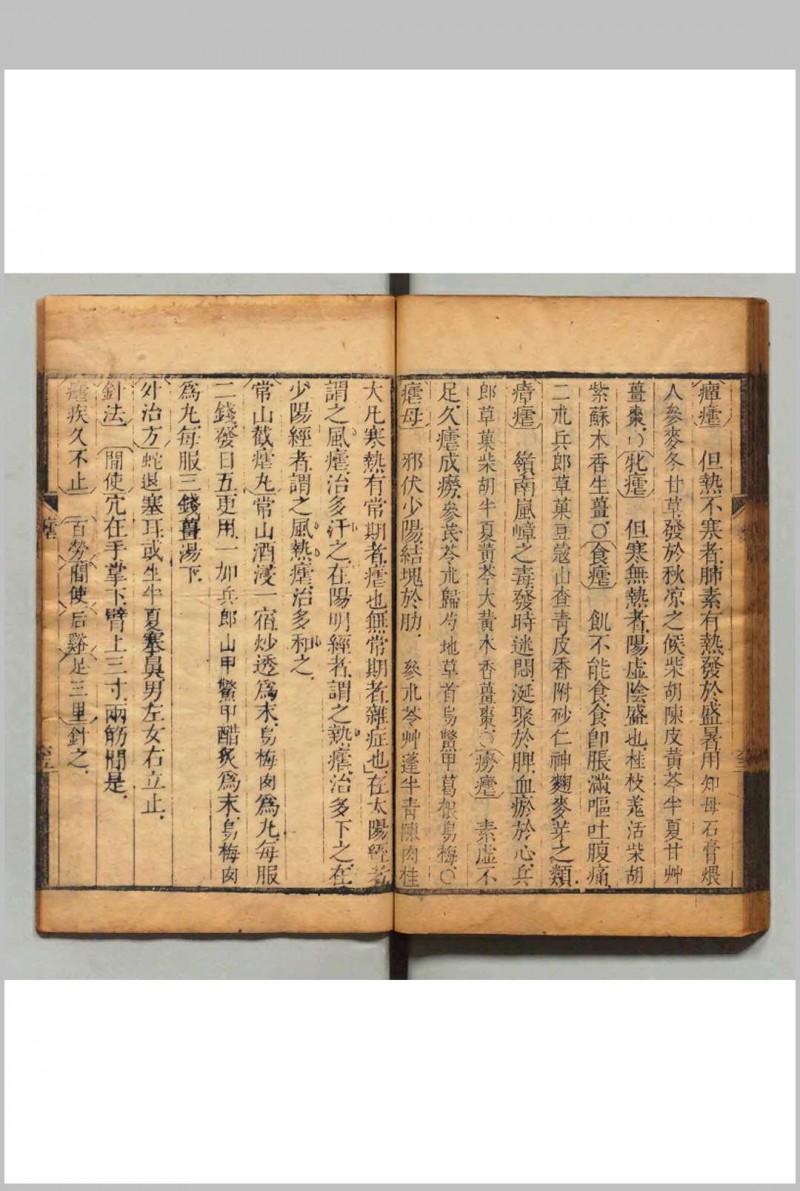 癉瘧　但熱不寒者肺素有熱發於盛暑用知母石膏煨
人參麥冬甘草發於秋凉之候柴胡陳皮黃芩半夏甘艸
薑棗○牝瘧　但寒無熱者陽虛陰盛也桂枝羗活柴胡
紫蘇木香生薑○食瘧　飢不能食食卽脹滿嘔吐腹痛
二朮兵郎草菓豆蔻山查青皮香附砂仁神麯麥芽之類
瘴瘧　嶺南嵐嶂之毒發時迷悶涎聚於脾血瘀於心兵
郎草菓柴胡半夏黃芩大黃木香薑棗○癆瘧　素虛不
足久瘧成癆參芪苓朮歸芍地草首烏鱉甲葛根烏梅○
瘧母　邪伏少陽結塊於肋　參朮苓艸蓬半青陳肉桂
大凡寒熱有常期者瘧也無常期者雜症也在太陽經者
謂之風瘧治多汗之在陽明經者謂之熱瘧治多下之在
少陽經者謂之風熱瘧治多和之
常山截瘧丸常山酒浸一宿炒透爲末烏梅肉爲丸每服
二錢發日五更用一加兵郎山甲鱉甲醋炙爲末烏梅肉
爲丸每服三錢薑湯下
外治方蛇退塞耳或生半夏塞鼻男左女右立止
針法　間使穴在手掌下臂上三寸兩筋間是
瘧疾久不止　百勞間使后谿足三里針之
瘧